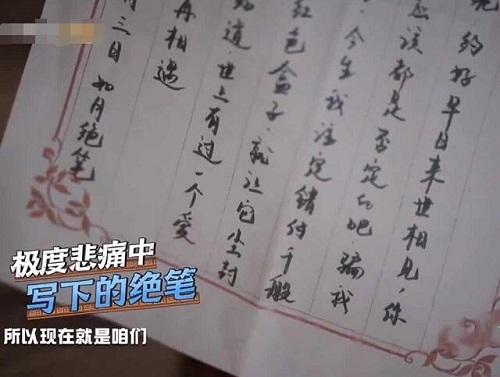 约好早日来世相见,你
应该都是否定的吧.骗我
.今生我注定错付千般
红色盒子.就让它尘封
道.世上有过一个爱
再相遇
月三日 如月绝笔
极度悲痛中
写下的绝笔
所以现在就是咱们